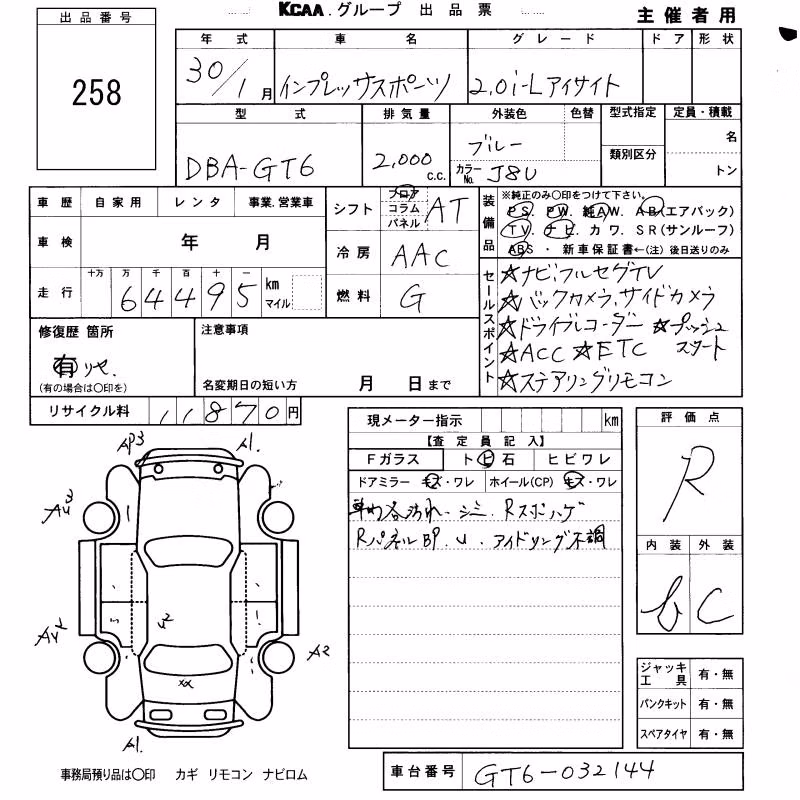 KCAA.グループ 出品票
主催者用
出品番号
258
年式 車名 グレード ドア 形状
30/1月 インプレッサスポーツ 2.0i-Lアイサイト
型式 排気量 外装色 色替 型式指定 定員・積載
DBA-GT6 2,000 c.c. ブルー 名
類別区分
カラーNo. J8U トン
車歴 自家用 レンタ 事業.営業車
シフト フロア コラム パネル AT
装備品
※純正のみ〇印をつけて下さい。
PS. PW. 純AW. AB(エアバック)
TV. ナビ. カワ. SR(サンルーフ)
ABS ・ 新車保証書←(注) 後日送りのみ
車検 年 月
冷房 AAC
走行 十万 万 千 百 十 一
64495 km マイル
燃料 G
セールスポイント
☆ナビ,フルセグTV
☆バックカメラ,サイドカメラ
☆ドライブレコーダー ☆プッシュスタート
☆ACC ☆ETC
☆ステアリングリモコン
修復歴 箇所
有 リセ.
(有の場合は〇印を)
注意事項
名変期日の短い方 月 日まで
リサイクル料 11870円
現メーター指示 km
【査定員記入】
Fガラス ト ヒ 石 ヒビワレ
ドアミラー キズ・ワレ ホイール(CP) キズ・ワレ
汚れ・シミ. Rスポイラゲ
RパネルBP. U. アイドリング不調
評価点
R
内装 外装
C
ジャッキ工具 有・無
パンクキット 有・無
スペアタイヤ 有・無
AP3 A1.
A2
A1.
XX
事務局預り品は〇印 カギ リモコン ナビロム
車台番号 GT6-032144